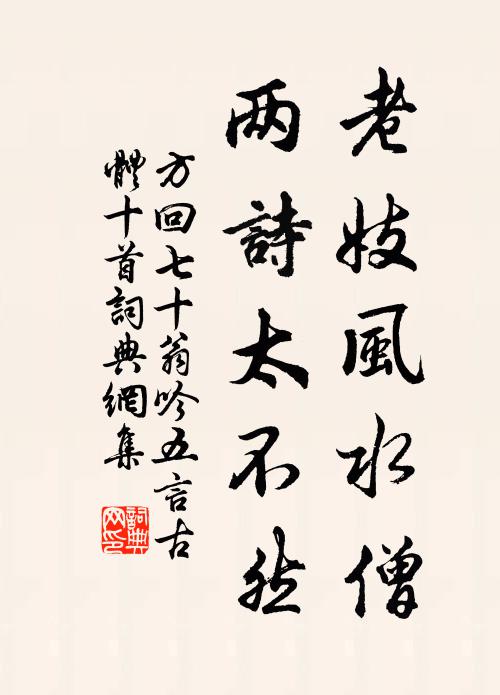 老妓風水僧
两詩太不然
方回七十翁吟五言古
體十首詞典網集
詞典网印